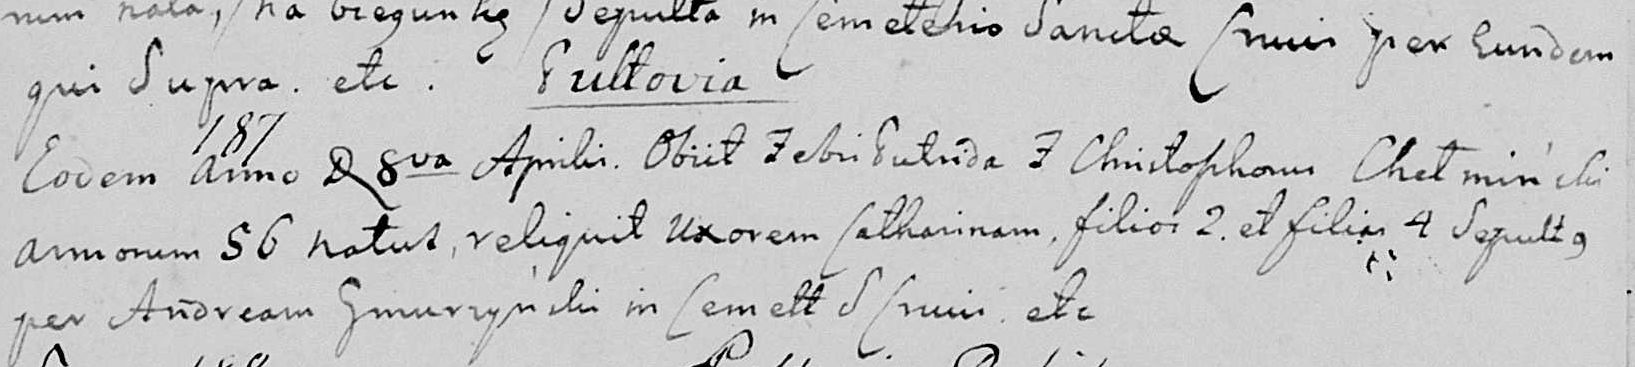 num nata, /na biegunkę/ Sepulta in Cemeterio Sanctæ Crucis per Eundem
qui Supra. etc. Pultovia
187
Eodem Anno D 8va Aprilis. Obiit Febri Putrida Christophorus Chełmiński
annorum 56 natus, reliquit Uxorem Catharinam, filios 2. et filias 4 Sepult9
per Andream Gmurzyński in Cemett S Crucis. etc